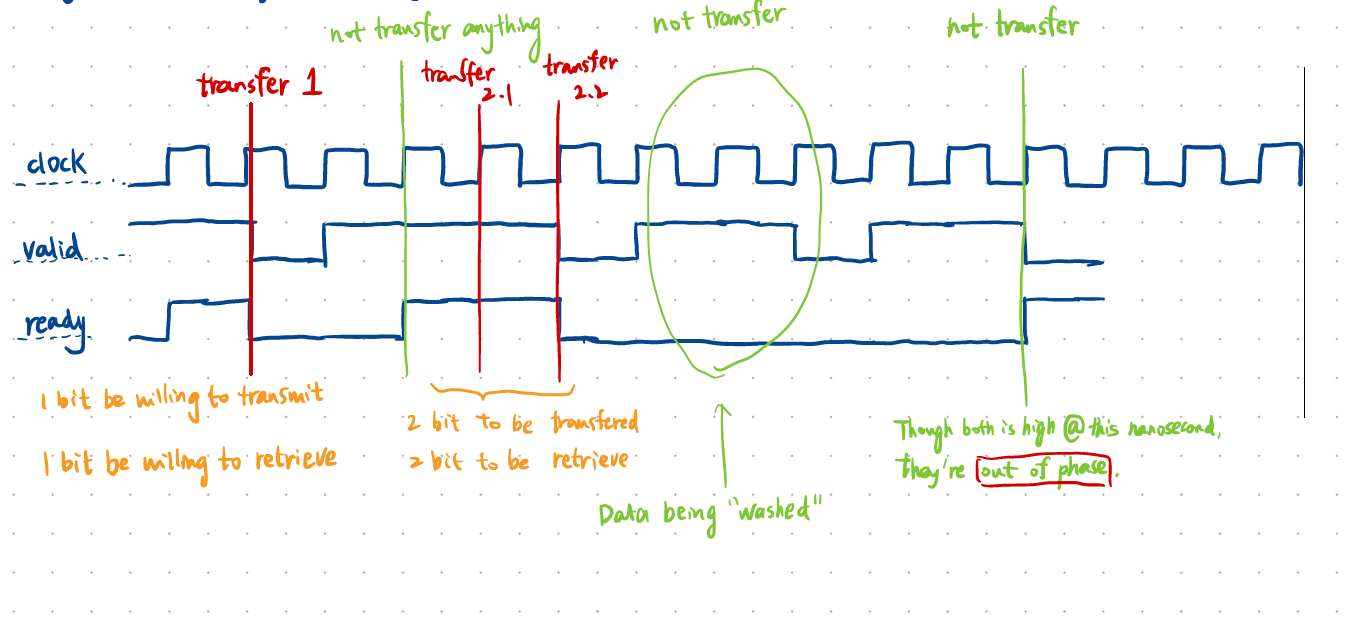 not transfer anything
not transfer
not transfer
transfer 1
transfer
2.1
transfer
2.2
clock
valid
ready
1 bit be willing to transmit
1 bit be willing to retrieve
2 bit to be transfered
2 bit to be retrieve
Data being "washed"
Though both is high @ this nanosecond,
they're out of phase.